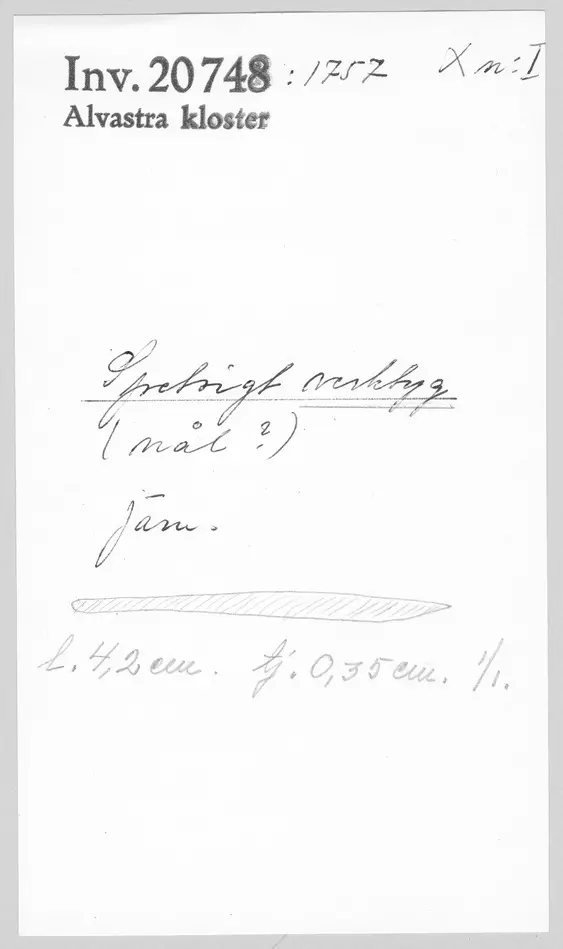 Inv. 20748 : 1757 X n:I
Alvastra kloster
Spetsigt verktyg
(nål ?)
järn.
l. 4,2 cm. tj. 0,35 cm. 1/1.